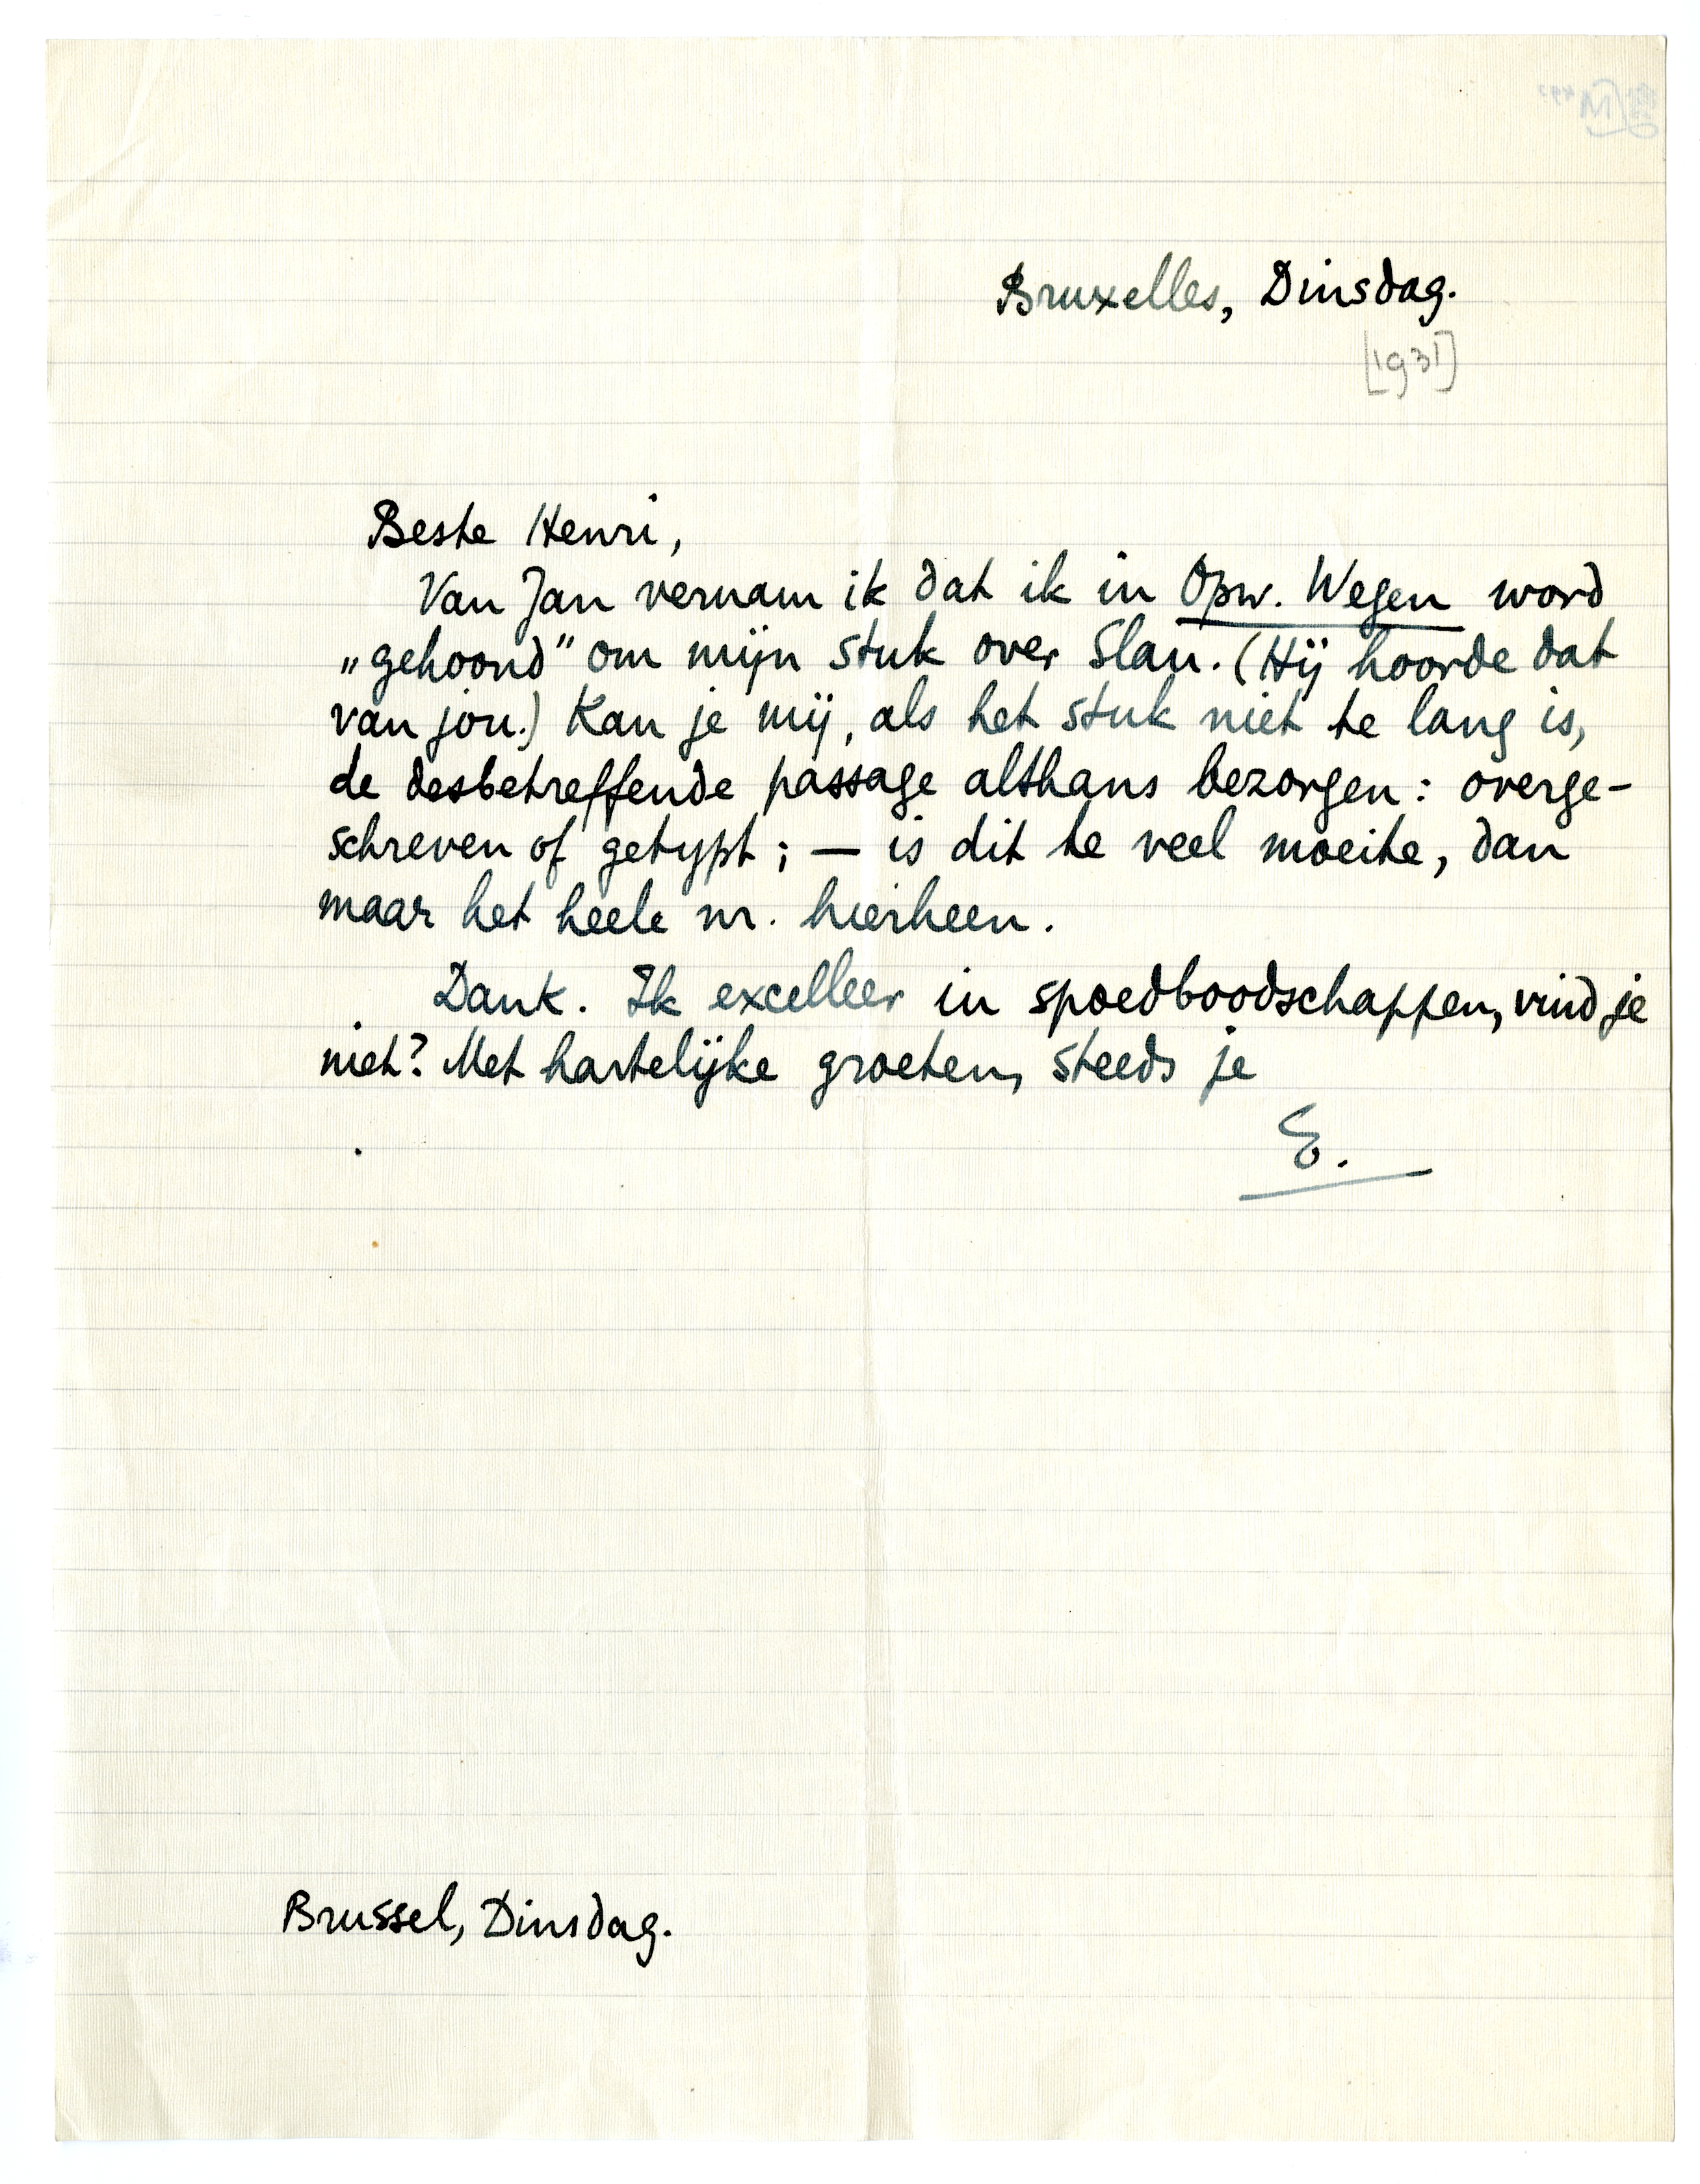 Bruxelles, Dinsdag.
[1931]
Beste Henri,
Van Jan vernam ik dat ik in Opw. Wegen word
„gehoond” om mijn stuk over Slau. (Hij hoorde dat
van jou.) Kan je mij, als het stuk niet te lang is,
de desbetreffende passage althans bezorgen: overge-
schreven of getypt; — is dit te veel moeite, dan
maar het heele nr. hierheen.
Dank. Ik excelleer in spoedboodschappen, vind je
niet? Met hartelijke groeten, steeds je
E.
Brussel, Dinsdag.